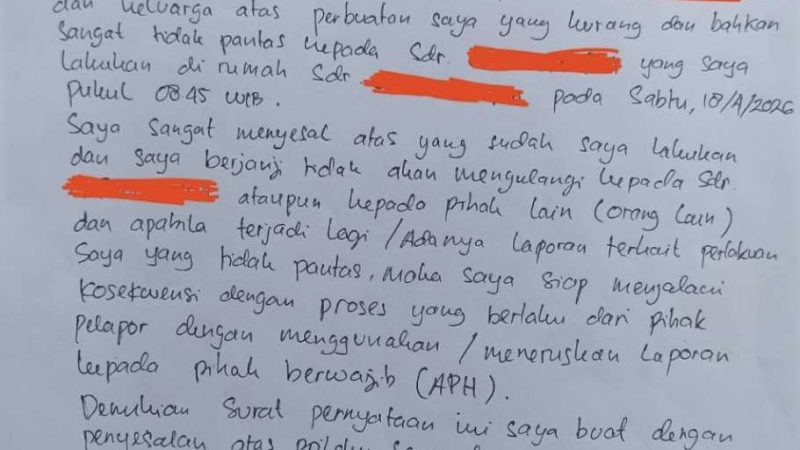 dan keluarga atas perbuatan saya yang kurang dan bahkan
sangat tidak pantas kepada Sdr. yang saya
lakukan di rumah Sdr pada Sabtu, 18/A/2026
Pukul 08.45 WIB.
Saya sangat menyesal atas yang sudah saya lakukan
dan saya berjanji tidak akan mengulangi kepada Sdr.
ataupun kepada pihak lain (orang lain)
dan apabila terjadi lagi / Adanya laporan terkait perlakuan
Saya yang tidak pantas, maka saya siap menjalani
Kosekwensi dengan proses yang berlaku dari pihak
pelapor dengan menggunakan / meneruskan laporan
kepada pihak berwajib (APH).
Demikian Surat pernyataan ini saya buat dengan
penyesalan atas